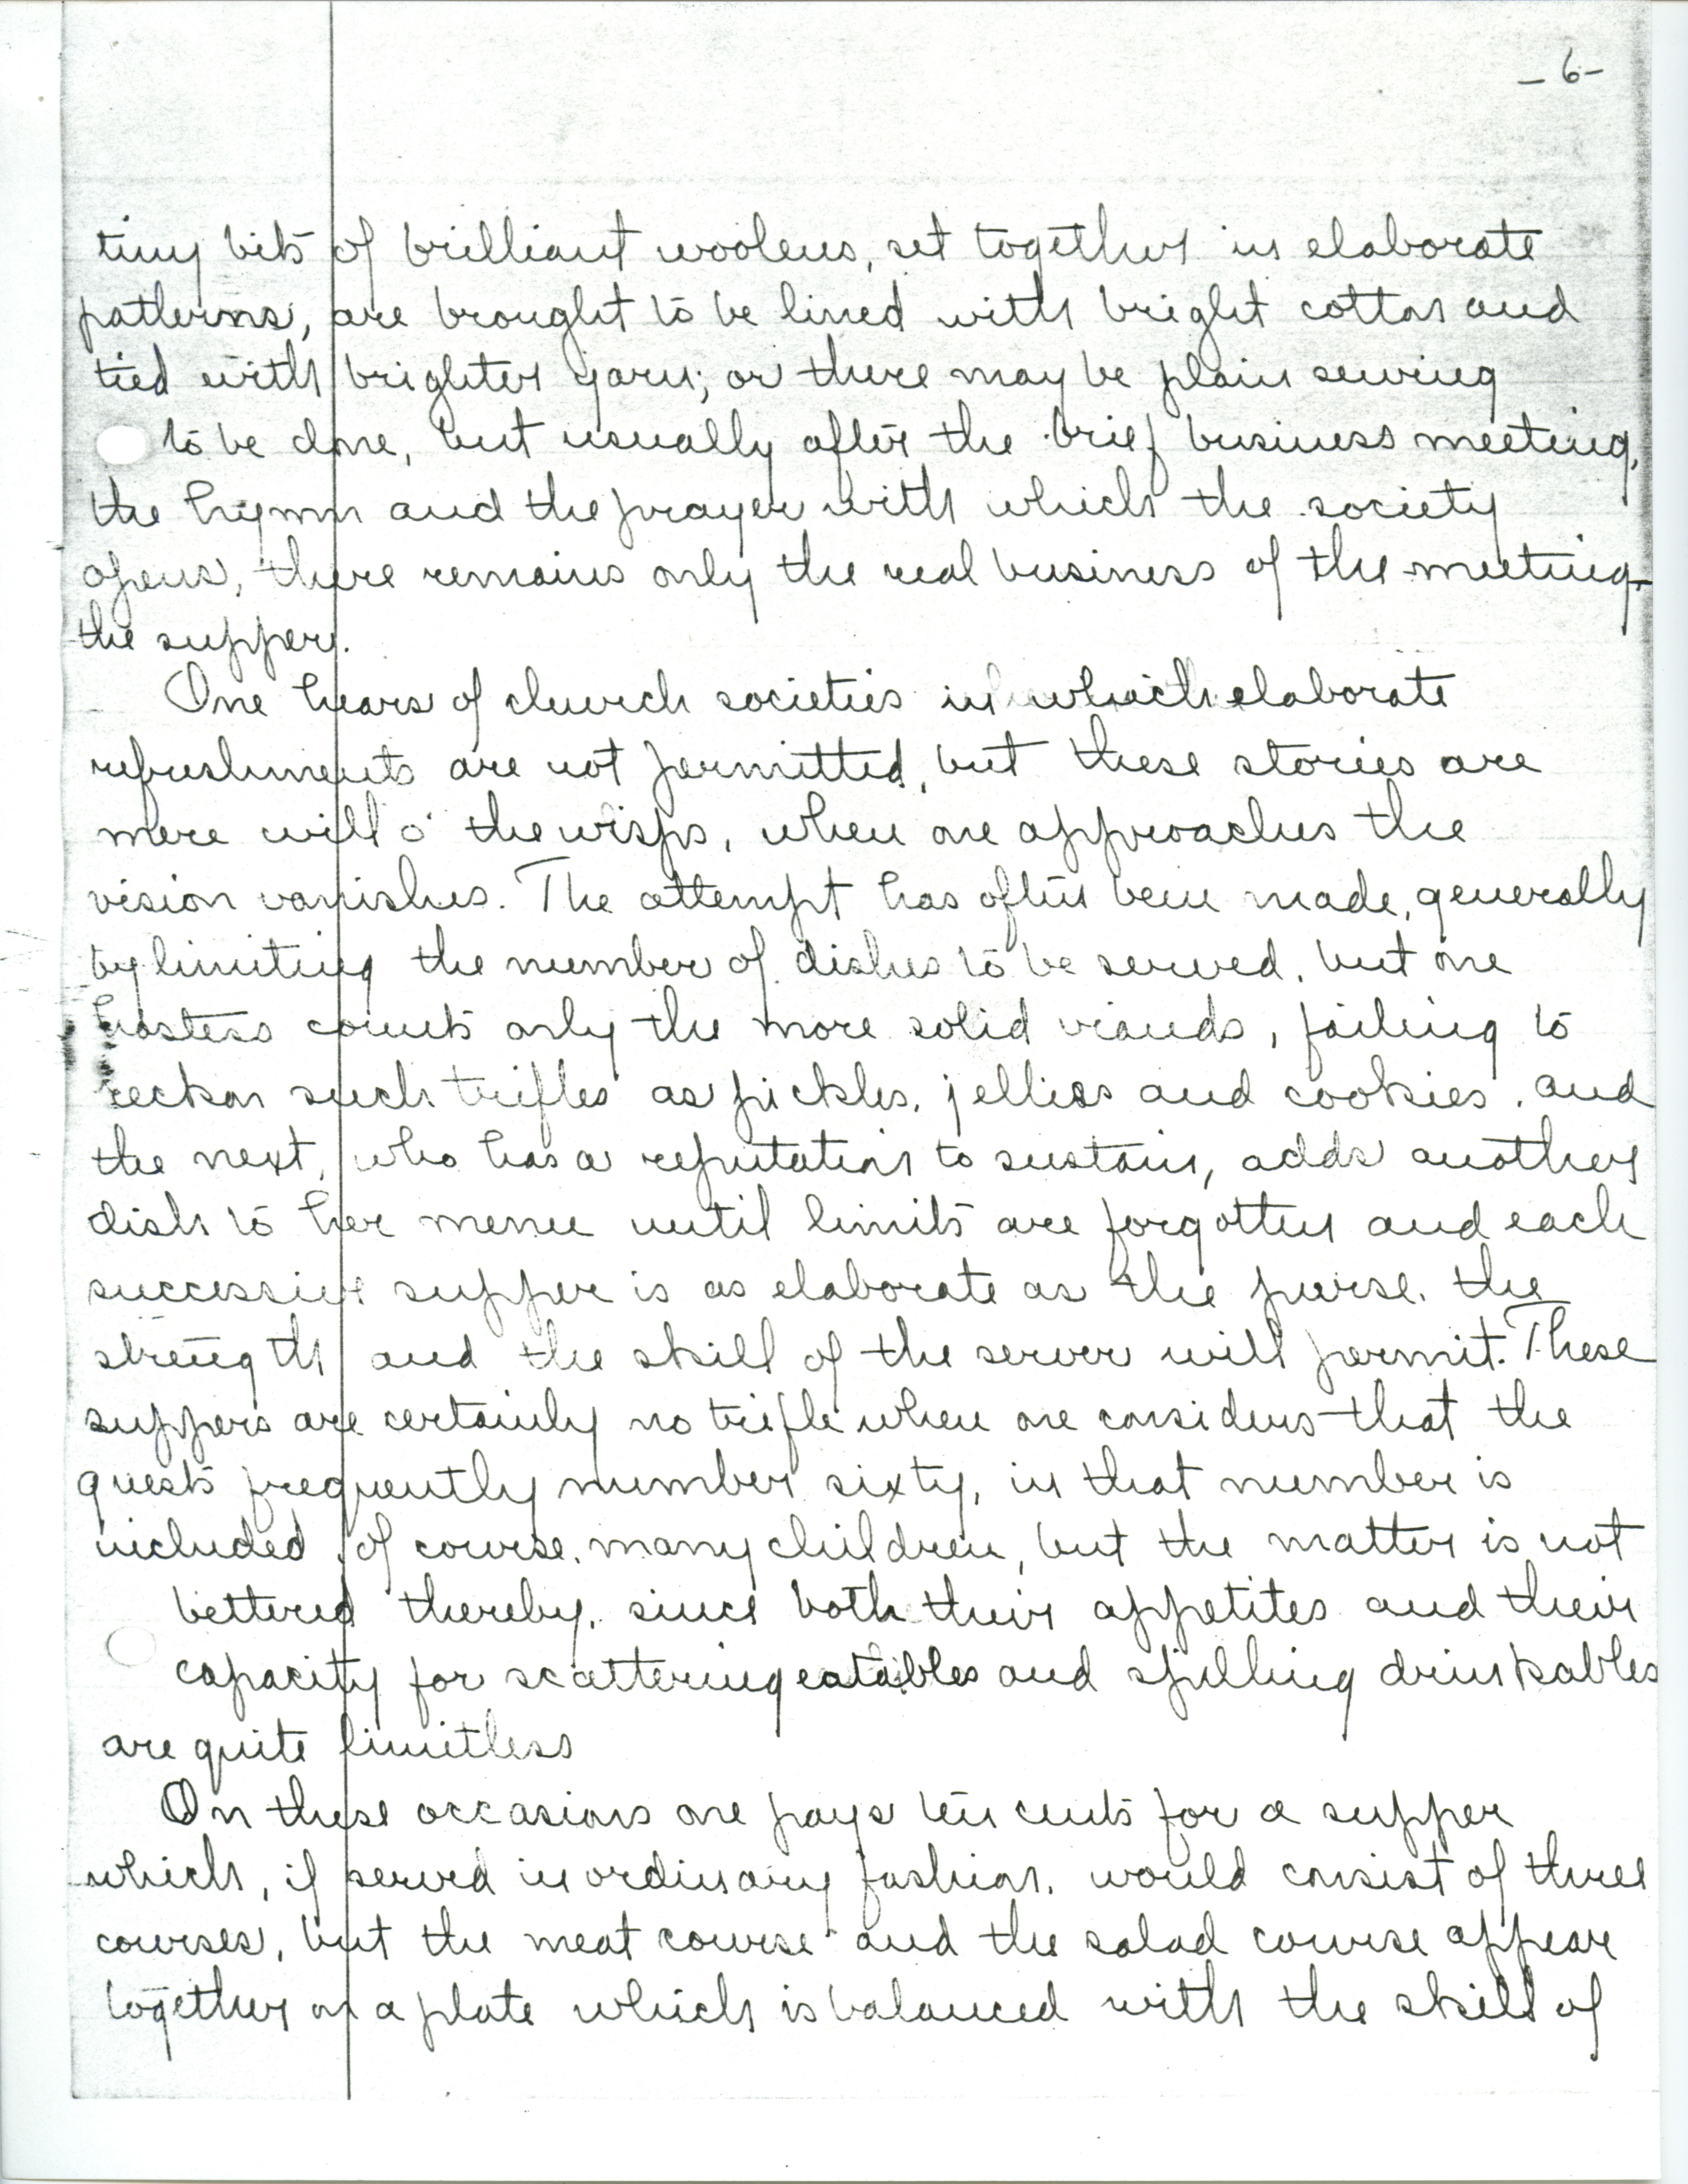 -6-
tiny bits of brilliant woolens, set together in elaborate
patterns, are brought to be lined with bright cotton and
tied with brighter yarn; or there may be plain sewing
to be done, but usually after the brief business meeting,
the hymn and the prayer with which the society
opens, there remains only the real business of the meeting-
the supper.
One hears of church societies in which elaborate
refreshments are not permitted, but these stories are
mere will o' the wisps, when one approaches the
vision vanishes. The attempt has often been made, generally
by limiting the number of dishes to be served, but one
hostess counts only the more solid viands, failing to
reckon such trifles as pickles, jellies and cookies, and
the next, who has a reputation to sustain, adds another
dish to her menu until limits are forgotten and each
successive supper is as elaborate as the purse, the
strength and the skill of the server will permit. These
suppers are certainly no trifle when one considers that the
guests frequently number sixty, in that number is
included, of course, many children, but the matter is not
bettered thereby, since both their appetites and their
capacity for scattering eatables and spilling drinkables
are quite limitless
On these occasions one pays ten cents for a supper
which, if served in ordinary fashion, would consist of three
courses, but the meat course and the salad course appear
together on a plate which is balanced with the skill of